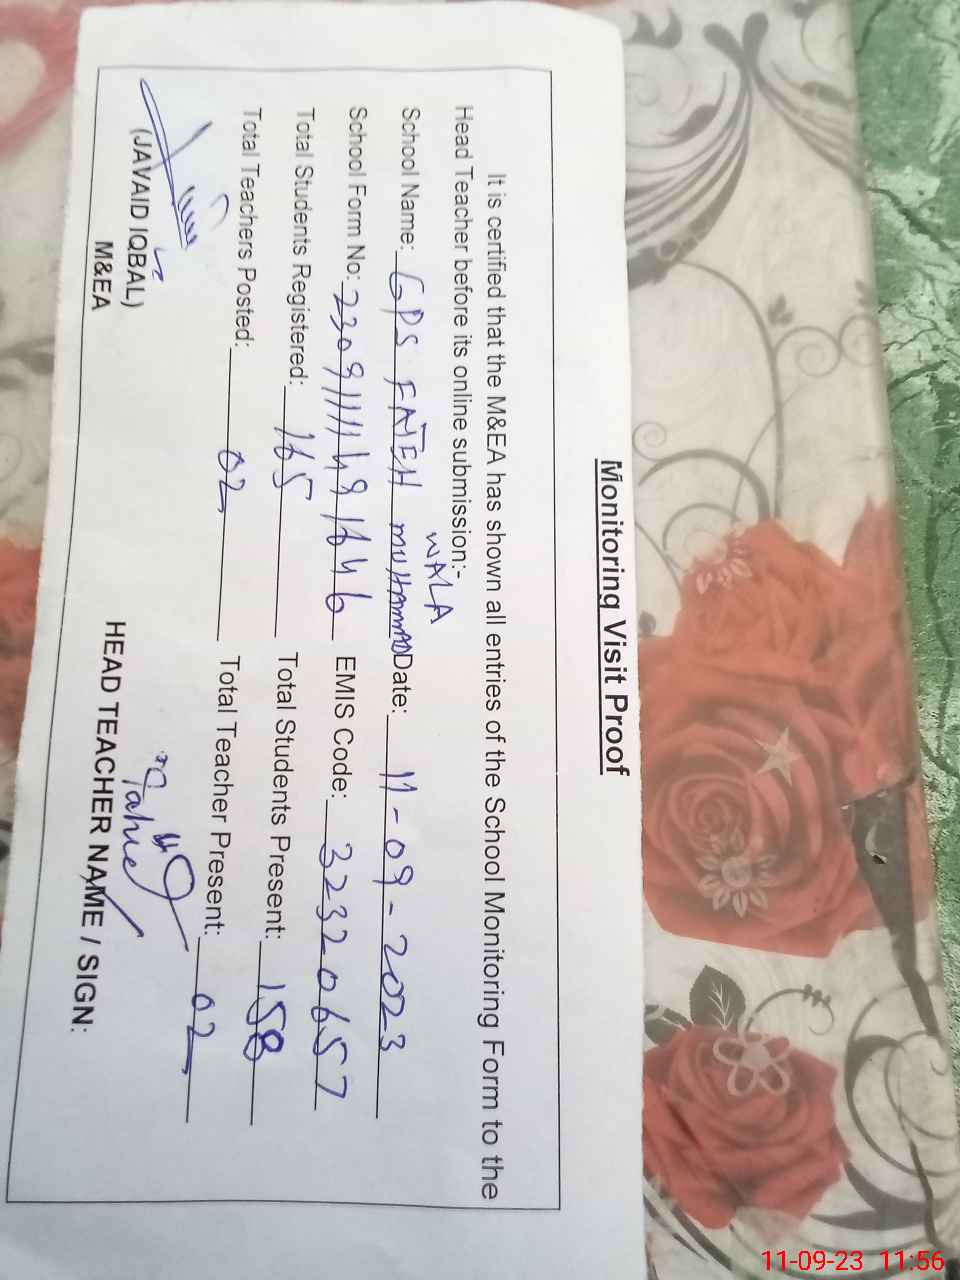 Monitoring Visit Proof
It is certified that the M&EA has shown all entries of the School Monitoring Form to the
Head Teacher before its online submission:-
WALA
School Name: GPS FATEH MUHAMMAD Date: 11-09-2023
School Form No: EMIS Code: 32320657
Total Students Registered: 165 Total Students Present: 158
Total Teachers Posted: 02 Total Teacher Present: 02
(JAVAID IQBAL)
M&EA
HEAD TEACHER NAME / SIGN:
11-09-23 11:56